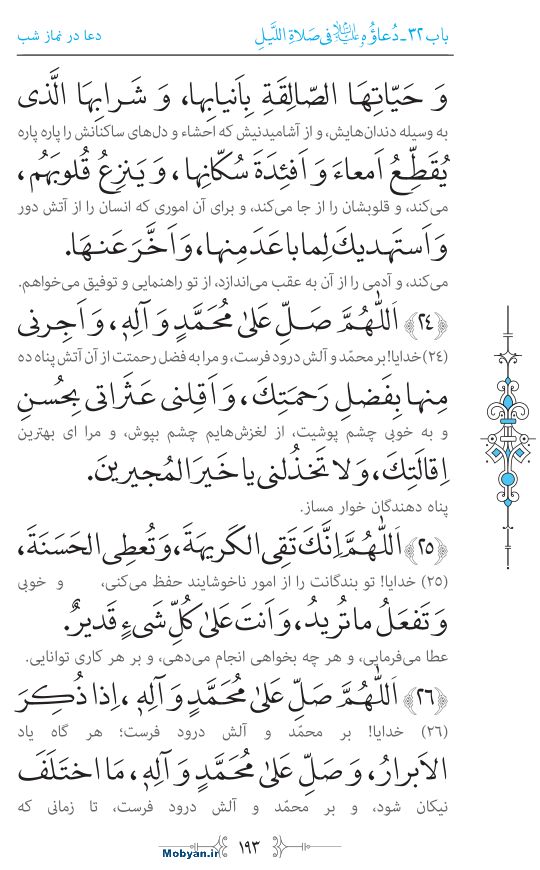 باب ۳۲ـ دُعاؤُه ‌علیه‌السلام فی صَلاةِ اللَّیلِ
دعا در نماز شب
وَ حَیّاتِهَا الصّالِقَةِ بِاَنیابِها، وَ شَرابِهَا الَّذی
به وسیله دندان‌هایش، و از آشامیدنیش که احشاء و دل‌های ساکنانش را پاره پاره
یُقَطِّعُ اَمعاءَ وَ اَفئِدَةَ سُکّانِها، وَ یَنزِعُ قُلوبَهُم،
می‌کند، و قلوبشان را از جا می‌کند، و برای آن اموری که انسان را از آتش دور
وَ اَستَهدیكَ لِما باعَدَ مِنها، وَ اَخَّرَ عَنها.
می‌کند، و آدمی را از آن به عقب می‌اندازد، از تو راهنمایی و توفیق می‌خواهم.
﴿٢٤﴾ اَللّٰهُمَّ صَلِّ عَلیٰ مُحَمَّدٍ وَ آلِهٖ، وَ اَجِرنی
(٢٤) خدایا! بر محمّد و آلش درود فرست، و مرا به فضل رحمتت از آن آتش پناه ده
مِنها بِفَضلِ رَحمَتِكَ، وَ اَقِلنی عَثَراتی بِحُسنِ
و به خوبی چشم پوشیت، از لغزش‌هایم چشم بپوش، و مرا ای بهترین
اِقالَتِكَ، وَ لا تَخذُلنی یا خَیرَ المُجیرینَ.
پناه دهندگان خوار مساز.
﴿٢٥﴾ اَللّٰهُمَّ اِنَّكَ تَقِی الکَریهَةَ، وَ تُعطِی الحَسَنَةَ،
(٢٥) خدایا! تو بندگانت را از امور ناخوشایند حفظ می‌کنی، و خوبی
وَ تَفعَلُ ما تُریدُ، وَ اَنتَ عَلیٰ کُلِّ شَیءٍ قَدیرٌ.
عطا می‌فرمایی، و هر چه بخواهی انجام می‌دهی، و بر هر کاری توانایی.
﴿٢٦﴾ اَللّٰهُمَّ صَلِّ عَلیٰ مُحَمَّدٍ وَ آلِهٖ، اِذا ذُکِرَ
(٢٦) خدایا! بر محمّد و آلش درود فرست؛ هر گاه یاد
الاَبرارُ، وَ صَلِّ عَلیٰ مُحَمَّدٍ وَ آلِهٖ، مَا اختَلَفَ
نیکان شود، و بر محمّد و آلش درود فرست، تا زمانی که
۱۹۳
Mobyan.ir